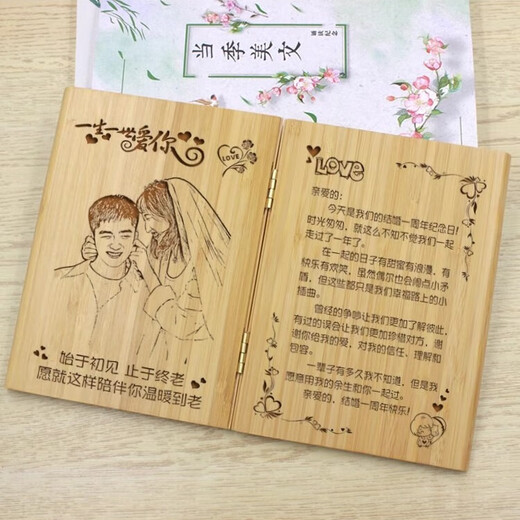 当季美文
一生一世爱你
LOVE
始于初见 止于终老
愿就这样陪伴你温暖到老
LOVE
亲爱的:
今天是我们的结婚一周年纪念日!
时光匆匆,就这么不知不觉我们一起
走过了一年了。
在一起的日子有甜蜜有浪漫,有
快乐有欢笑,虽然偶尔也会闹点小矛
盾,但这些都只是我们幸福路上的小
插曲。
曾经的争吵让我们更加了解彼此,
有过的误会让我们更加珍惜对方,谢
谢你给我的爱,对我的信任、理解和
包容。
一辈子有多久我不知道,但是我
愿意用我的余生和你一起过。
亲爱的,结婚一周年快乐!